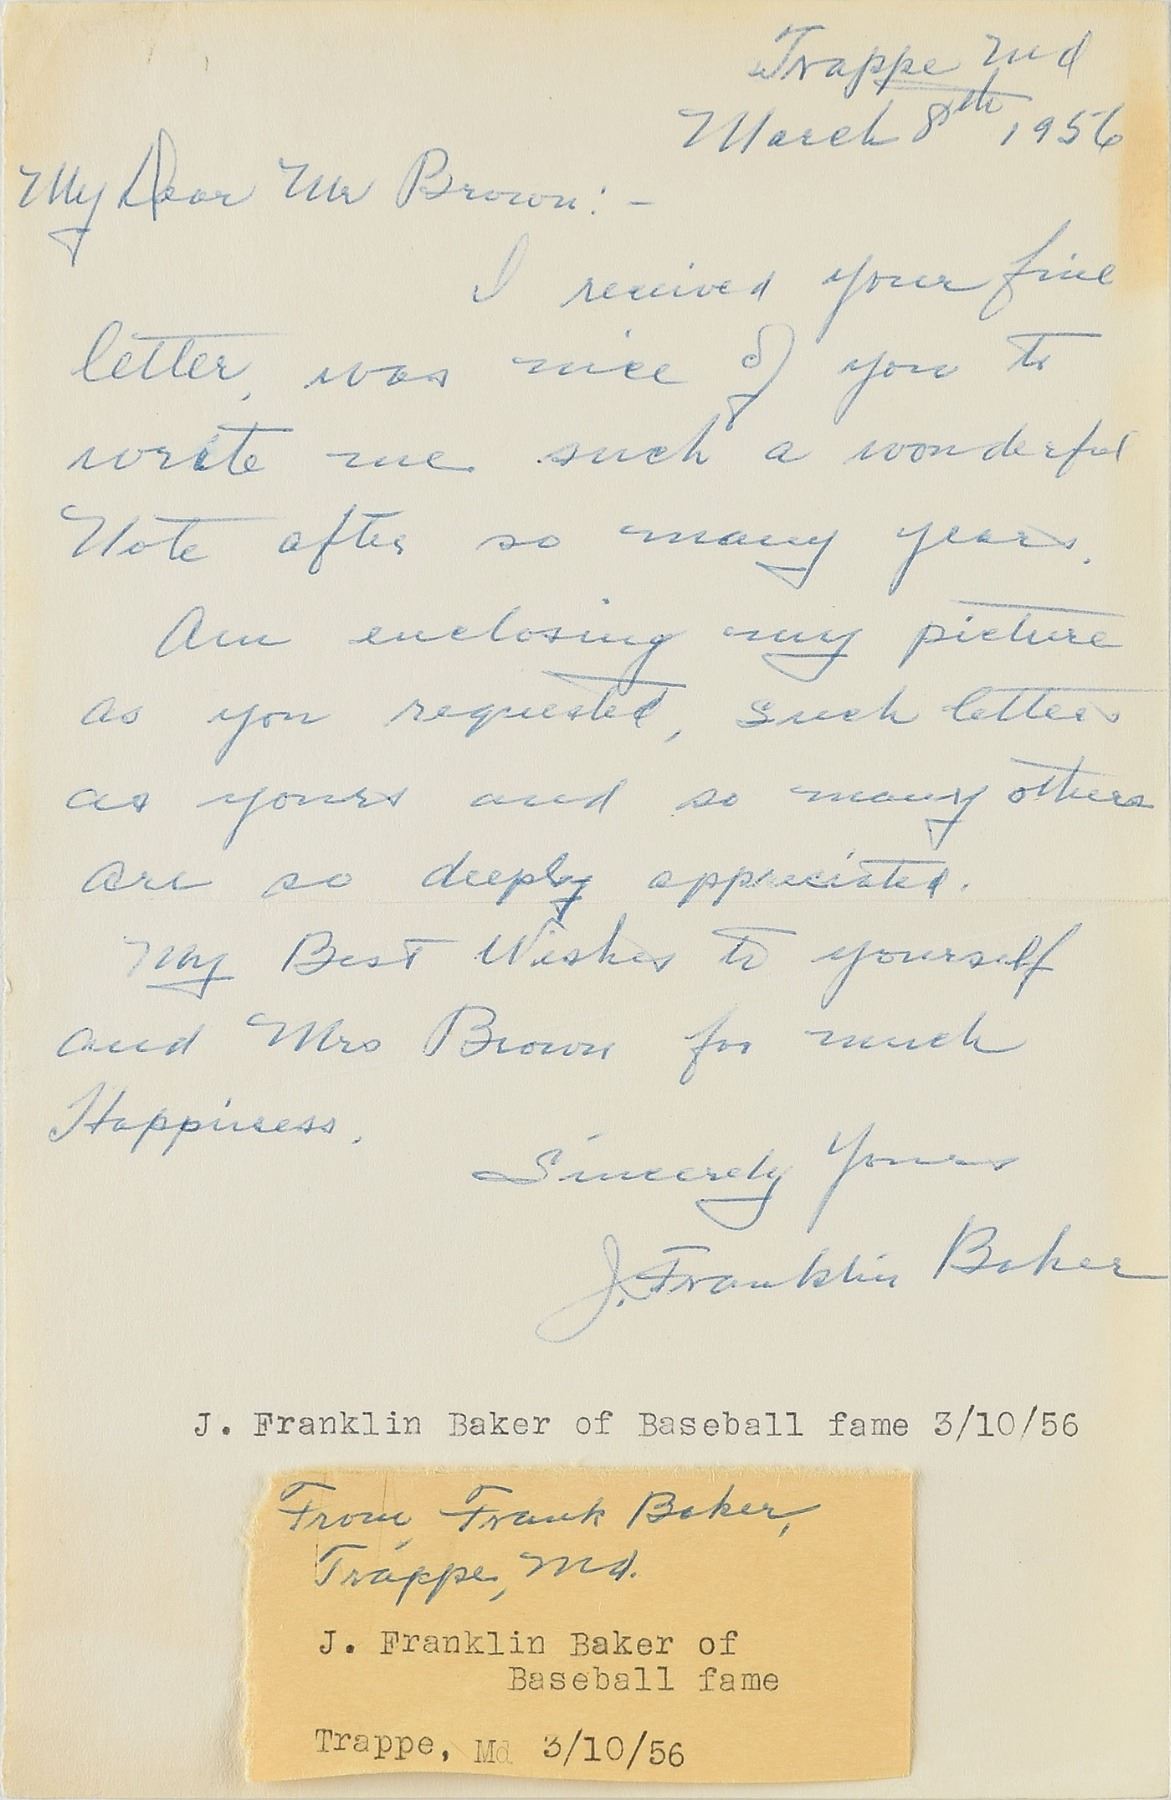 Trappe Md
March 8th, 1956
My Dear Mr Brown: -
I received your fine
letter, was nice of you to
write me such a wonderful
Note after so many years.
Am enclosing my picture
as you requested, such letters
as yours and so many others
are so deeply appreciated.
My Best Wishes to yourself
and Mrs Brown for much
Happiness.
Sincerely Yours
J. Franklin Baker
J. Franklin Baker of Baseball fame 3/10/56
From, Frank Baker,
Trappe, Md.
J. Franklin Baker of
Baseball fame
Trappe, Md 3/10/56